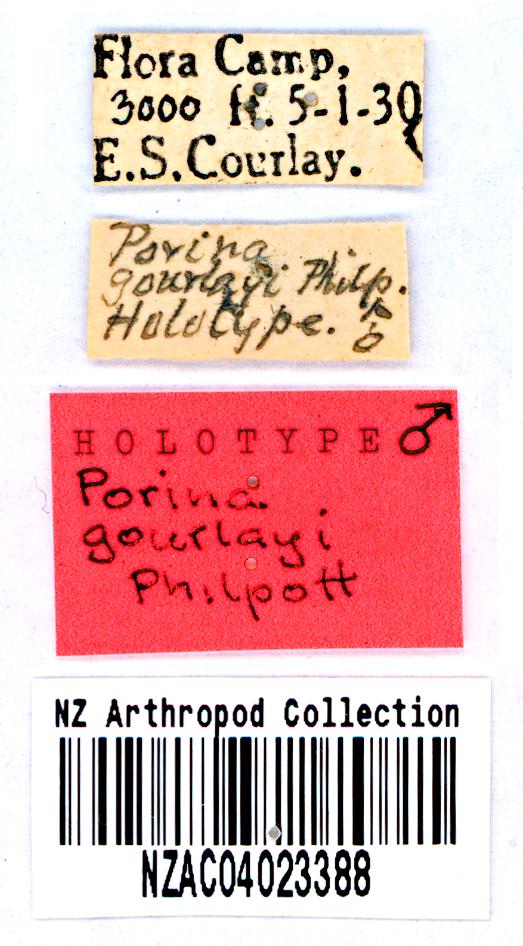 Flora Camp,
3000 ft. 5-1-30
E.S. Gourlay.
Porina
gourlayi Philp.
Holotype. ♂
HOLOTYPE ♂
Porina
gourlayi
Philpott
NZ Arthropod Collection
NZAC04023388